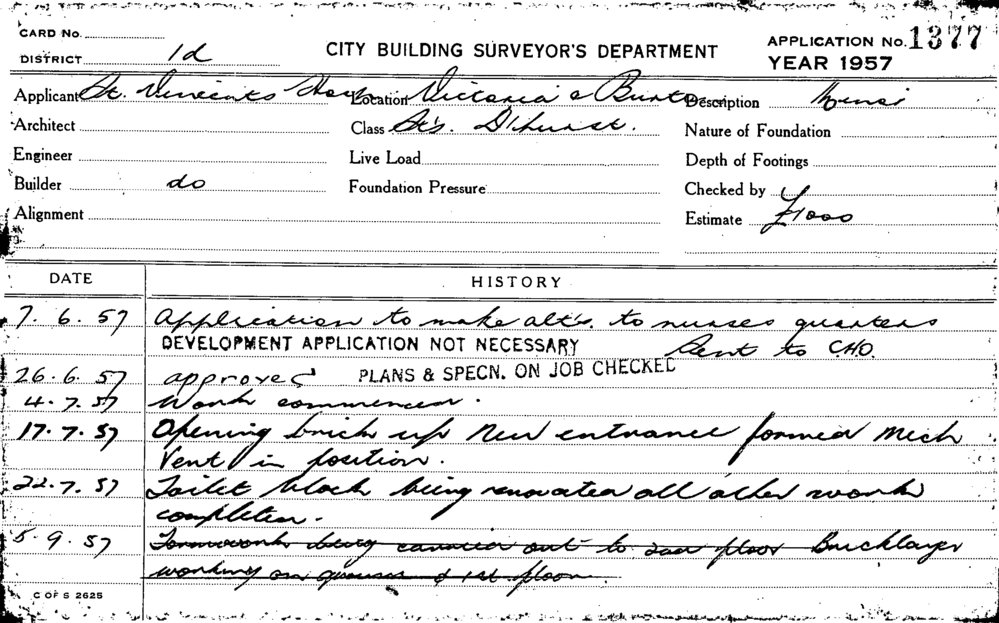 CARD No.
DISTRICT 1d
CITY BUILDING SURVEYOR'S DEPARTMENT
APPLICATION No. 1377
YEAR 1957
Applicant St. Vincents Hosp Location Victoria & Burton Description
Architect Class Sts. D'hurst. Nature of Foundation
Engineer Live Load Depth of Footings
Builder do Foundation Pressure Checked by
Alignment Estimate £1000
DATE HISTORY
7. 6. 57 Application to make alt's. to nurses quarters
DEVELOPMENT APPLICATION NOT NECESSARY Sent to C.H.O.
26. 6. 57 approved PLANS & SPECN. ON JOB CHECKED
4. 7. 57 Work commenced.
17. 7. 57 Opening brick up New entrance formed Mech
Vent in position.
22. 7. 57 Toilet block being renovated all other work
completed.
5. 9. 57 Formwork being carried out to 2nd floor Bricklayer
working on ground & 1st floor.
C OF S 2625